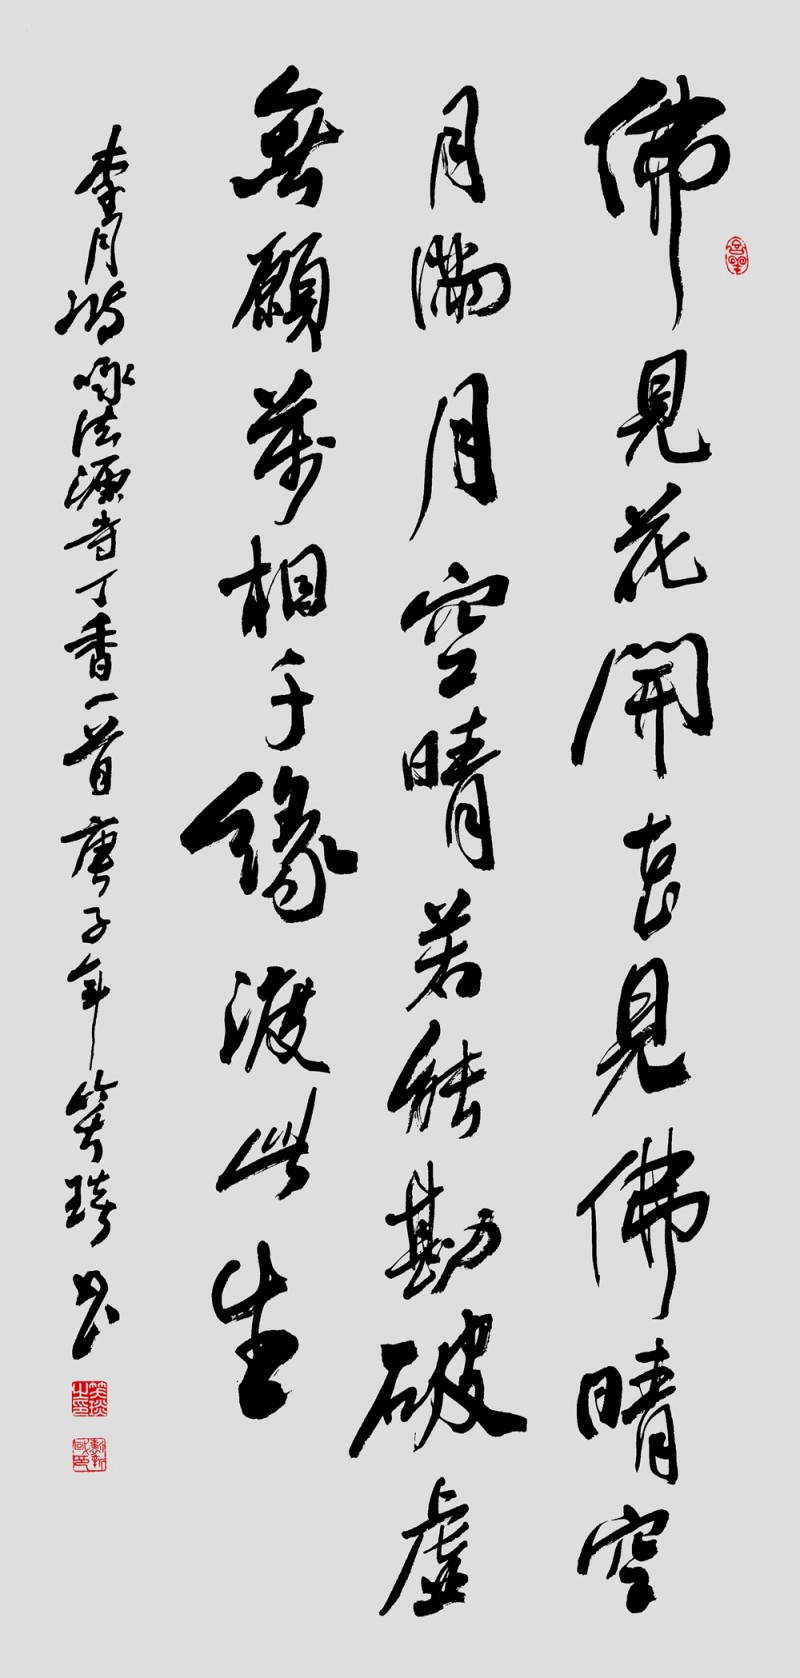 佛見花開花見佛晴空
月滿月空晴若能勘破虛
無願萬相千緣渡此生
李月 咏法源寺丁香一首庚子年笑 書